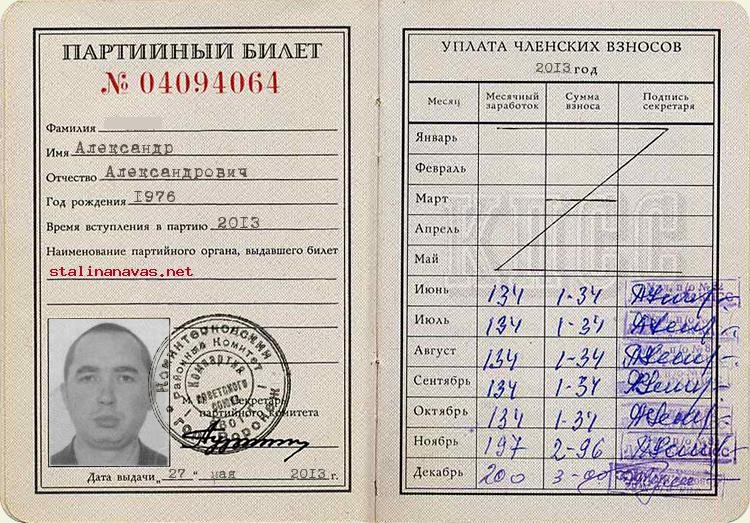 ПАРТИЙНЫЙ БИЛЕТ
№ 04094064
Фамилия
Имя Александр
Отчество Александрович
Год рождения 1976
Время вступления в партию 2013
Наименование партийного органа, выдавшего билет
stalinanavas.net
Коминтерновский
Районный Комитет
Компартия
Советского
Союза
М. Секретарь
партийного комитета
Дата выдачи „27 “ мая 2013 г.
УПЛАТА ЧЛЕНСКИХ ВЗНОСОВ
2013 год
Месяц Месячный заработок Сумма взноса Подпись секретаря
Январь
Февраль
Март
Апрель
Май
КПСС
Июнь 134 1-34
Июль 134 1-34
Август 134 1-34
Сентябрь 134 1-34
Октябрь 134 1-34
Ноябрь 197 2-96
Декабрь 200